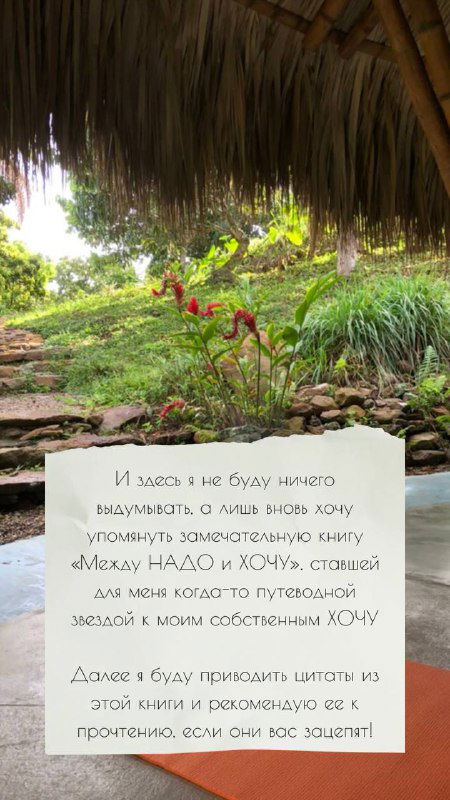 И здесь я не буду ничего
выдумывать, а лишь вновь хочу
упомянуть замечательную книгу
«Между НАДО и ХОЧУ», ставшей
для меня когда-то путеводной
звездой к моим собственным ХОЧУ
Далее я буду приводить цитаты из
этой книги и рекомендую ее к
прочтению, если они вас зацепят!